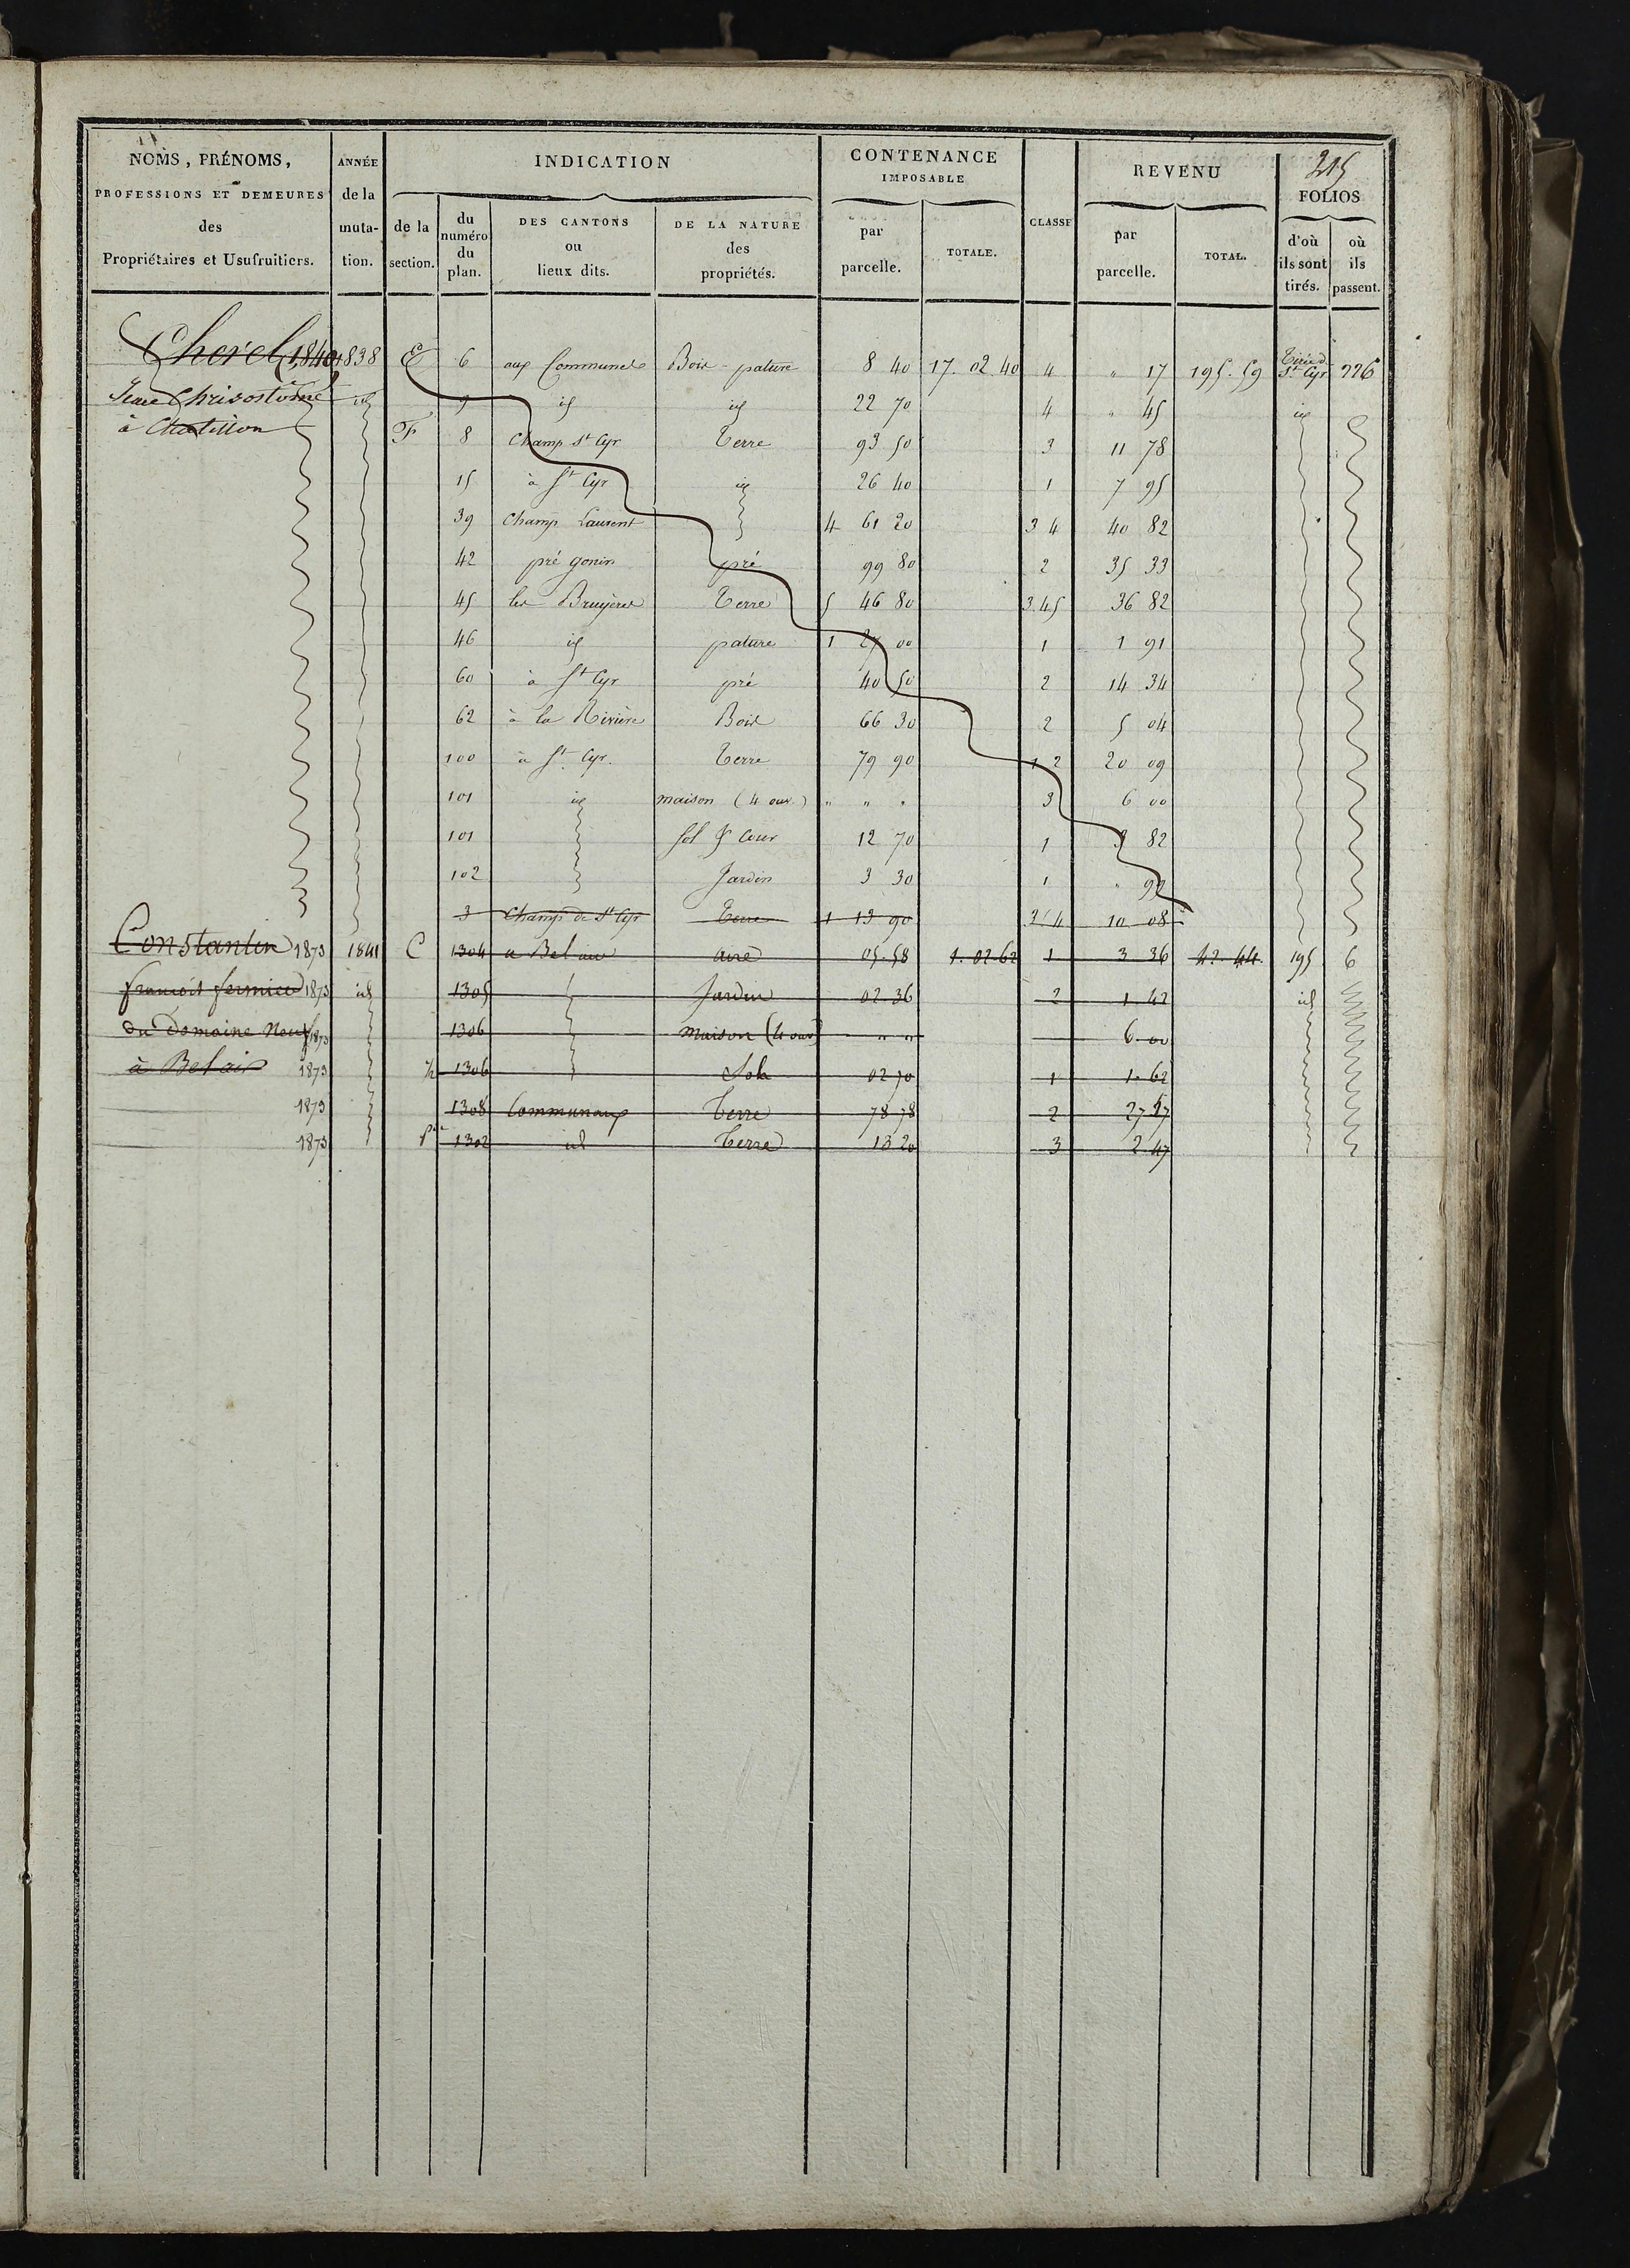 215
NOMS, PRÉNOMS, PROFESSIONS ET DEMEURES des Propriétaires et Usufruitiers.
ANNÉE de la muta- tion.
INDICATION
de la section.
du numéro du plan.
DES CANTONS ou lieux dits.
DE LA NATURE des propriétés.
CONTENANCE IMPOSABLE
par parcelle.
TOTALE.
CLASSE
REVENU
par parcelle.
TOTAL.
FOLIOS
d'où ils sont tirés.
où ils passent.
Cherel 1840 1838 E 6 aux Communes Bois pature 8 40 17. 02. 40 4 " 17 195. 59 St Cyr 226
Chrisostôme id 9 id id 22 70 4 " 45 id
à Chatillon F 8 Champ St Cyr Terre 93 50 3 11 78
15 à St Cyr id 26 40 1 7 95
39 Champ Laurent 4 61 20 3 4 40 82
42 pré gonin pré 99 80 2 35 33
45 les Bruyères Terre 5 46 80 3.4.5 36 82
46 id pature 1 27 00 1 1 91
60 à St Cyr pré 40 50 2 14 34
62 à la Rivière Bois 66 30 2 5 04
100 à St Cyr. Terre 79 90 1 2 20 09
101 id maison (4 ouv.) " " " 3 6 00
101 Sol & Cour 12 70 1 3 82
102 Jardin 3 30 1 " 99
3 Champ de St Cyr Terre 1 13 90 3 4 10 08
Constantin 1873 1841 C 1304 a Bel air aire 05. 58 1. 02. 62 1 3 36 42. 44. 195 6
francois fermier 1873 id 1305 Jardin 02. 36 2 1. 42 id
du Domaine Neuf 1873 1306 Maison (4 ouv) " " 6. 00
à Belair 1873 ½ 1306 Sol 02 70 1 1. 62
1873 1308 Communaux Terre 78 78 2 27 57
1873 Pie 1302 id Terre 13 20 3 2. 47